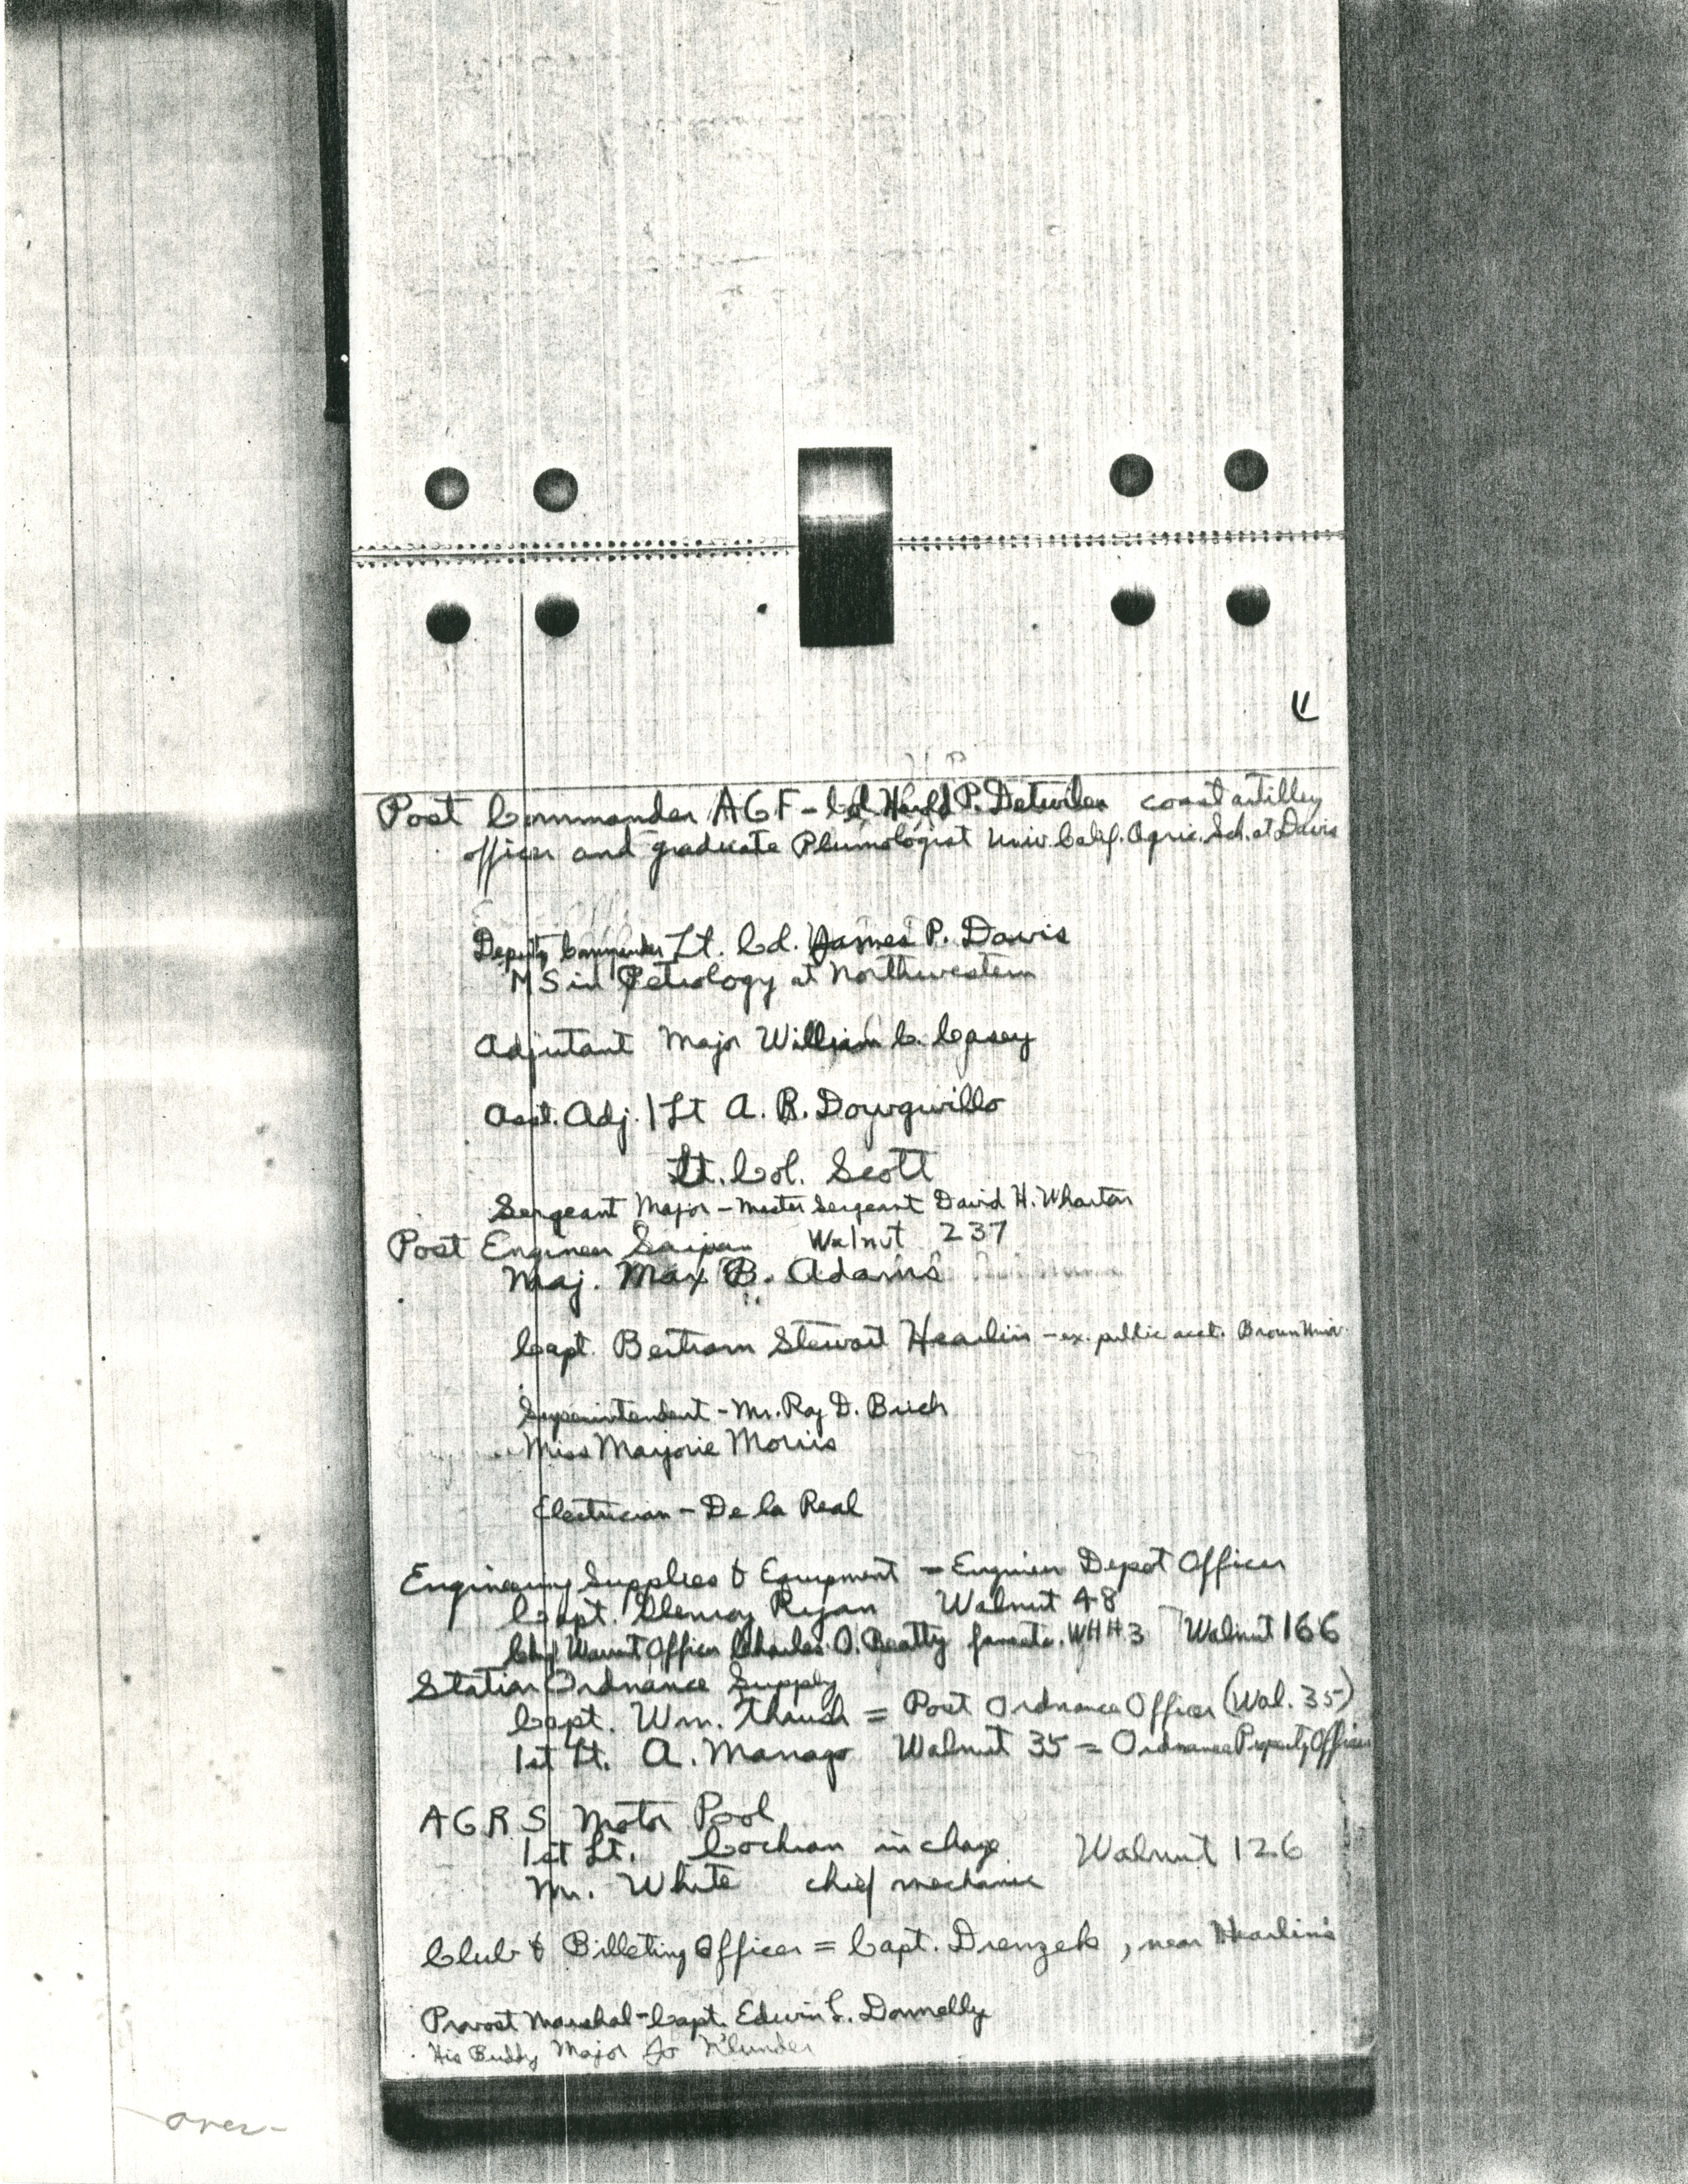 Post Commander AGF - Col Harold P. Detwiler coast artillery
officer and graduate Plumologist Univ. Calif. Agric. Sch. at Davis
Deputy Commander Lt. Col. James P. Davis
MS in Petrology at Northwestern
Adjutant Major William C. Casey
Asst. Adj. 1 Lt A. R. Dowgwillo
Lt. Col. Scott
Sergeant Major - Master Sergeant David H. Wharton
Post Engineer Saipan Walnut 237
Maj. Max B. Adams
Capt. Bertram Stewart Hearlin - ex. public acct. Brown Univ.
Superintendent - Mr. Ray D. Buch
Miss Marjorie Morris
Electrician - De la Real
Engineering Supplies & Equipment - Engineer Depot Officer
Capt. Glenroy Ryan Walnut 48
Chief Warrant Officer Charles O. Beatty WHH3 Walnut 166
Station Ordnance Supply
Capt. Wm. Thrush = Post Ordnance Officer (Wal. 35)
1st Lt. A. Manago Walnut 35 = Ordnance Property Officer
AGRS Motor Pool
1st Lt. Cochran in charge Walnut 126
Mr. White chief mechanic
Club & Billeting Officer = Capt. Drenzek, near Hearlin's
Provost Marshal - Capt. Edwin L. Donnelly
His Buddy Major Jo Klunder
over-